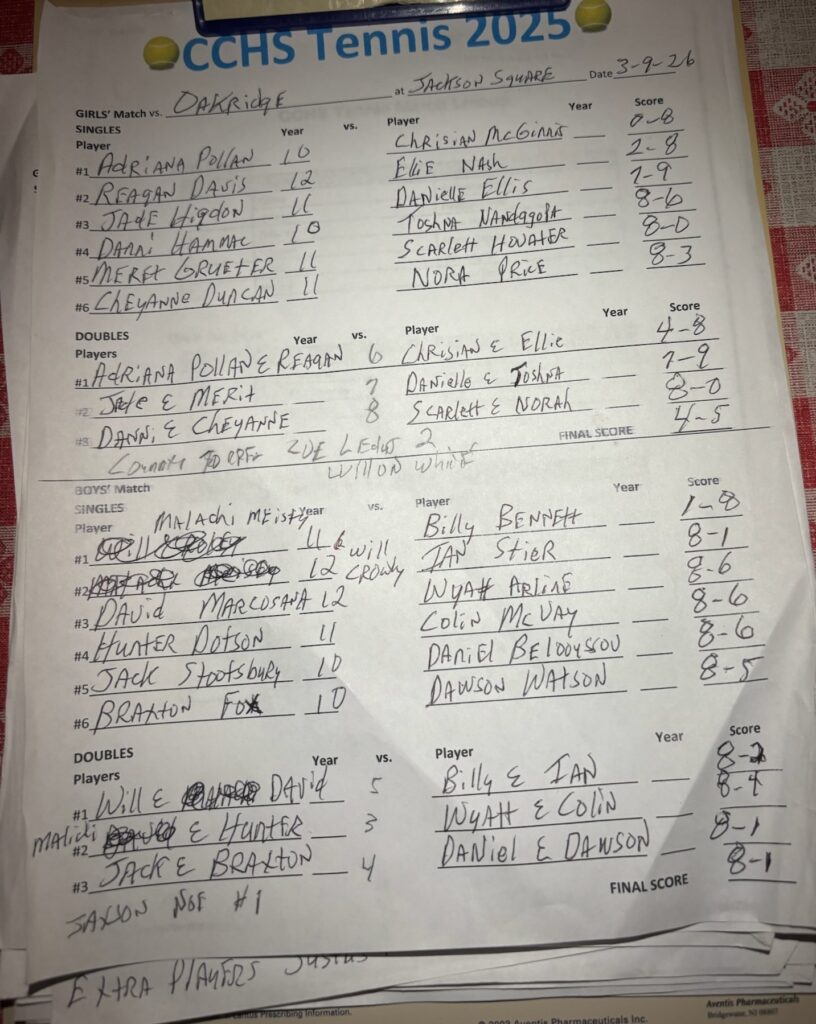 CCHS Tennis 2025
GIRLS' Match vs. OAKRidgE at JACKSON SQUARE Date 3-9-26
SINGLES Year vs. Player Year Score
Player
#1 AdRiANA POLLAN 10 CHRiSiAN McGinnis 0-8
#2 REAGAN DAVIS 12 ELIE NAsh 2-8
#3 JADE Higdon 11 DANielle Ellis 7-9
#4 DANNi HAMMAC 10 Toshna 8-6
#5 MERET GRUETER 11 ScARlett 8-0
#6 ChEyANNe DUNCAN 11 NORA PRICE 8-3
DOUBLES Year vs. Player Year Score
Players
#1 AdRiANA POLLAN & REAGAN 6 CHRISIAN & Ellie 4-8
#2 Jade & MERit 7 DANielle & Toshna 7-9
#3 DANNi & ChEYANNE 8 ScARlett & NORAh 8-0
2 FINAL SCORE 4-5
BOYS' Match
SINGLES MALAchi Year vs. Player Year Score
Player
#1 11 Billy BENNEtt 1-8
#2 12 Will CROWly IAN StiER 8-1
#3 DAVid MARCOSANA 12 WyAtt ARLiNE 8-6
#4 HUNTER DOTSON 11 Colin McVAY 8-6
#5 JACK Stootsbury 10 DANiEL 8-6
#6 BRAXTON FOX 10 DAWSON WATSON 8-5
DOUBLES Year vs. Player Year Score
Players
#1 Will & DAVid 5 Billy & IAN 8-2
#2 & HUNTER 3 WyAtt & Colin 8-4
#3 JACK & BRAXTON 4 DANiel & DAWSON 8-1
FINAL SCORE 8-1
JAXSON NOT #1
EXTRA PLAYERS
Prescribing Information.
Aventis Pharmaceuticals Inc.
Aventis Pharmaceuticals
Bridgewater, NJ 08807